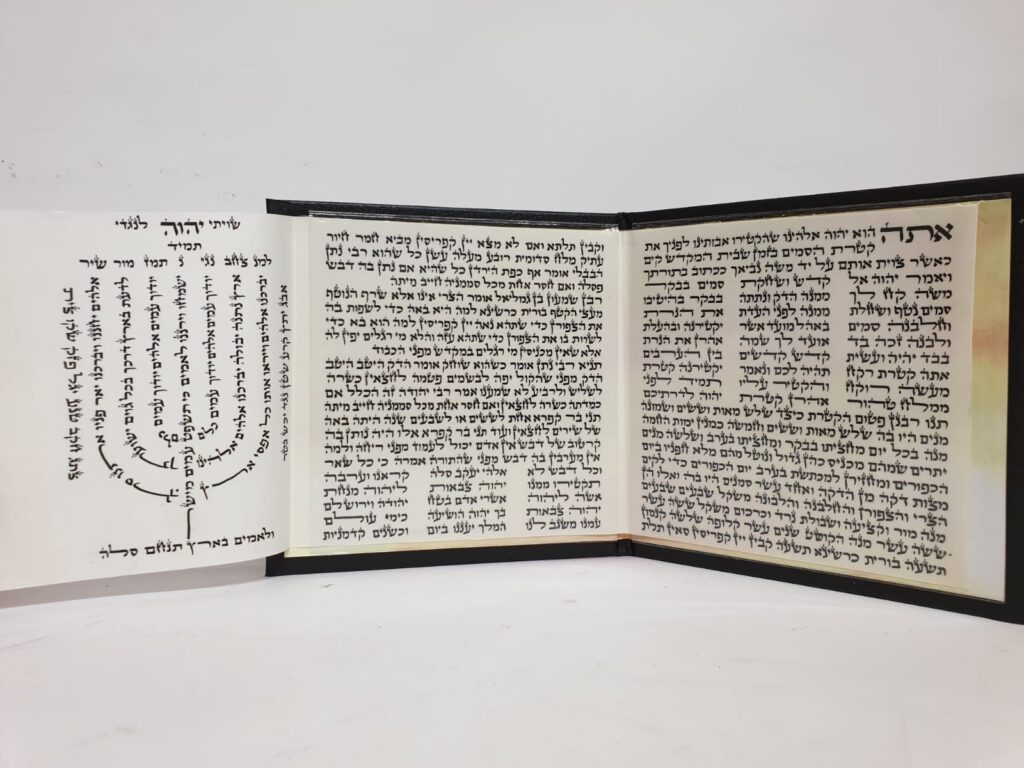 אתה הוא יהוה אלהינו שהקטירו אבותינו לפניך את
קטרת הסמים בזמן שבית המקדש קים
כאשר צוית אותם על יד משה נביאך ככתוב בתורתך
ויאמר יהוה אל
משה קח לך
סמים נטף ושחלת
וחלבנה סמים
ולבנה זכה בד
בבד יהיה ועשית
אתה קטרת רקח
מעשה רוקח
ממלח טהור
קדש ושחקת
ממנה הדק ונתתה
ממנה לפני העדת
באהל מועד אשר
אועד לך שמה
קדש קדשים
תהיה לכם ונאמר
והקטיר עליו
אהרן קטרת
סמים בבקר
בבקר בהיטיבו
את הנרת
יקטירנה ובהעלת
אהרן את הנרת
בין הערבים
יקטירנה קטרת
תמיד לפני
יהוה לדרתיכם
תנו רבנן פטום הקטרת כיצד שלש מאות וששים ושמונה
מנים היו בה שלש מאות וששים וחמשה כמנין ימות החמה
מנה בכל יום מחציתו בבקר ומחציתו בערב ושלשה מנים
יתרים שמהם מכניס כהן גדול ונוטל מהם מלא חפניו ביום
הכפורים ומחזירן למכתשת בערב יום הכפורים כדי לקים
מצות דקה מן הדקה ואחד עשר סמנים היו בה ואלו הן
הצרי והצפורן והחלבנה והלבונה משקל שבעים שבעים
מנה מור וקציעה ושבולת נרד וכרכום משקל ששה עשר
ששה עשר מנה הקושט שנים עשר קלופה שלשה קנמון
תשעה בורית כרשינא תשעה קבין יין קפריסין סאין תלת
וקבין תלתא ואם לא מצא יין קפריסין מביא חמר חיור
עתיק מלח סדומית רובע מעלה עשן כל שהוא רבי נתן
הבבלי אומר אף כפת הירדן כל שהיא אם נתן בה דבש
פסלה ואם חסר אחת מכל סממניה חייב מיתה
רבן שמעון בן גמליאל אומר הצרי אינו אלא שרף הנוטף
מעצי הקטף בורית כרשינא למה היא באה כדי לשפות בה
את הצפורן כדי שתהא נאה יין קפריסין למה הוא בא כדי
לשרות בו את הצפורן כדי שתהא עזה והלא מי רגלים יפין לה
אלא שאין מכניסין מי רגלים במקדש מפני הכבוד
תניא רבי נתן אומר כשהוא שוחק אומר הדק היטב היטב
הדק מפני שהקול יפה לבשמים פטמה לחצאין כשרה
לשליש ולרביע לא שמענו אמר רבי יהודה זה הכלל אם
כמדתה כשרה לחצאין ואם חסר אחת מכל סממניה חייב מיתה
תני בר קפרא אחת לששים או לשבעים שנה היתה באה
של שירים לחצאין ועוד תני בר קפרא אלו היה נותן בה
קרטוב של דבש אין אדם יכול לעמוד מפני ריחה ולמה
אין מערבין בה דבש מפני שהתורה אמרה כי כל שאר
וכל דבש לא
תקטירו ממנו
אשה ליהוה
יהוה צבאות
עמנו משגב לנו
אלהי יעקב סלה
יהוה צבאות
אשרי אדם בטח
בך יהוה הושיעה
המלך יעננו ביום
קראנו וערבה
ליהוה מנחת
יהודה וירושלם
כימי עולם
וכשנים קדמניות
שויתי יהוה לנגדי
תמיד
למנצח בנגינת מזמור שיר
ולאמים בארץ תנחם סלה